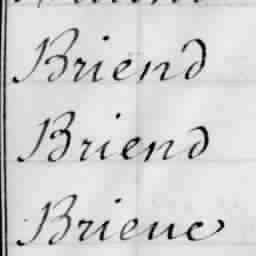 Briend
Briend
Brieuc